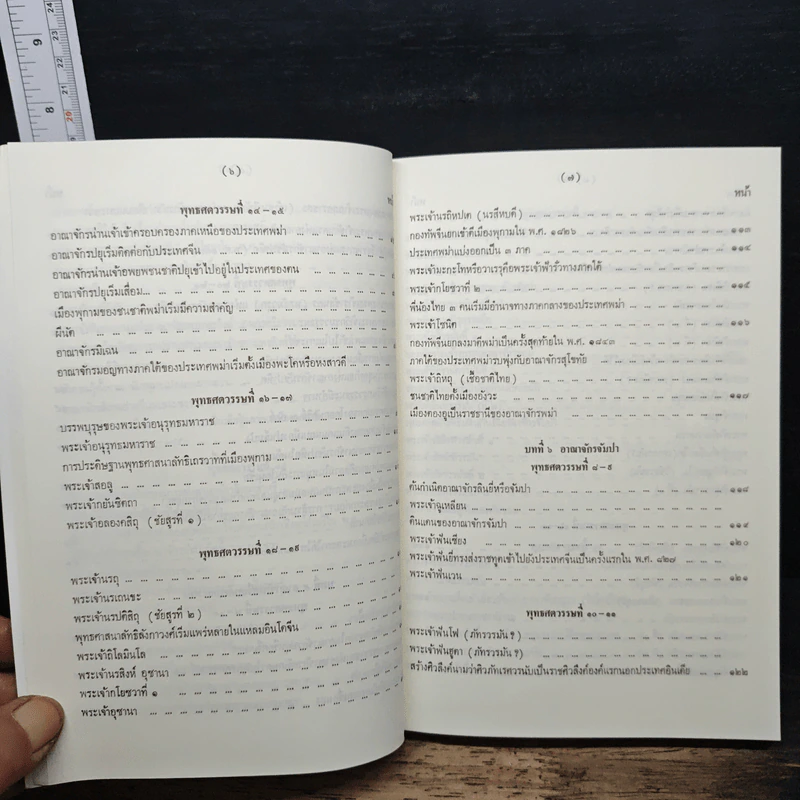 (๖)
พุทธศตวรรษที่ ๑๔-๑๕
อาณาจักรน่านเจ้าเข้าครอบครองภาคเหนือของประเทศพม่า
อาณาจักรปยุเริ่มติดต่อกับประเทศจีน
อาณาจักรน่านเจ้าอพยพชนชาติปยุเข้าไปอยู่ในประเทศของตน
อาณาจักรปยุเริ่มเสื่อม
เมืองพุกามของชนชาติพม่าเริ่มมีความสำคัญ
ผีนัต
อาณาจักรมิเฉน
อาณาจักรมอญทางภาคใต้ของประเทศพม่าเริ่มตั้งเมืองพะโคหรือหงสาวดี
พุทธศตวรรษที่ ๑๖-๑๗
บรรพบุรุษของพระเจ้าอนุรุทธมหาราช
พระเจ้าอนุรุทธมหาราช
การประดิษฐานพุทธศาสนาลัทธิเถรวาทที่เมืองพุกาม
พระเจ้าสอลู
พระเจ้ากยันซิตถา
พระเจ้าอลองคสิถุ (ชัยสูรที่ ๑)
พุทธศตวรรษที่ ๑๘-๑๙
พระเจ้านรถุ
พระเจ้านรเถนขะ
พระเจ้านรปติสิถุ (ชัยสูรที่ ๒)
พุทธศาสนาลัทธิลังกาวงศ์เริ่มแพร่หลายในแหลมอินโดจีน
พระเจ้าติโลมินโล
พระเจ้านรสิงห์ อุซานา
พระเจ้ากโยชวาที่ ๑
พระเจ้าอุซานา
(๗)
หน้า
พระเจ้านรถิหปเต (นรสีหบดี)
กองทัพจีนยกเข้าตีเมืองพุกามใน พ.ศ. ๑๘๒๖ ๑๑๓
ประเทศพม่าแบ่งออกเป็น ๓ ภาค ๑๑๔
พระเจ้ามะกะโทหรือวาเรรุคือพระเจ้าฟ้ารั่วทางภาคใต้
พระเจ้ากโยชวาที่ ๒ ๑๑๕
พี่น้องไทย ๓ คนเริ่มมีอำนาจทางภาคกลางของประเทศพม่า
พระเจ้าโซนิต ๑๑๖
กองทัพจีนยกลงมาตีพม่าเป็นครั้งสุดท้ายใน พ.ศ. ๑๘๔๓
ภาคใต้ของประเทศพม่ารบพุ่งกับอาณาจักรสุโขทัย
พระเจ้าถิหถุ (เชื้อชาติไทย)
ชนชาติไทยตั้งเมืองอังวะ ๑๑๘
เมืองตองอูเป็นราชธานีของอาณาจักรพม่า
บทที่ ๖ อาณาจักรจัมปา
พุทธศตวรรษที่ ๘-๙
ต้นกำเนิดอาณาจักรลินยี่หรือจัมปา ๑๑๘
พระเจ้าฉูเหลียน
ดินแดนของอาณาจักรจัมปา ๑๑๙
พระเจ้าฟันเซียง ๑๒๐
พระเจ้าฟันยี่ทรงส่งราชทูตเข้าไปยังประเทศจีนเป็นครั้งแรกใน พ.ศ. ๘๒๗
พระเจ้าฟันเวน ๑๒๑
พุทธศตวรรษที่ ๑๐-๑๑
พระเจ้าฟันโฟ (ภัทรวรมัน ?)
พระเจ้าฟันฮูตา (ภัทรวรมัน ?)
สร้างศิวลึงค์นามว่าศิวภัทเรศวรนับเป็นราชศิวลึงค์องค์แรกนอกประเทศอินเดีย ๑๒๒